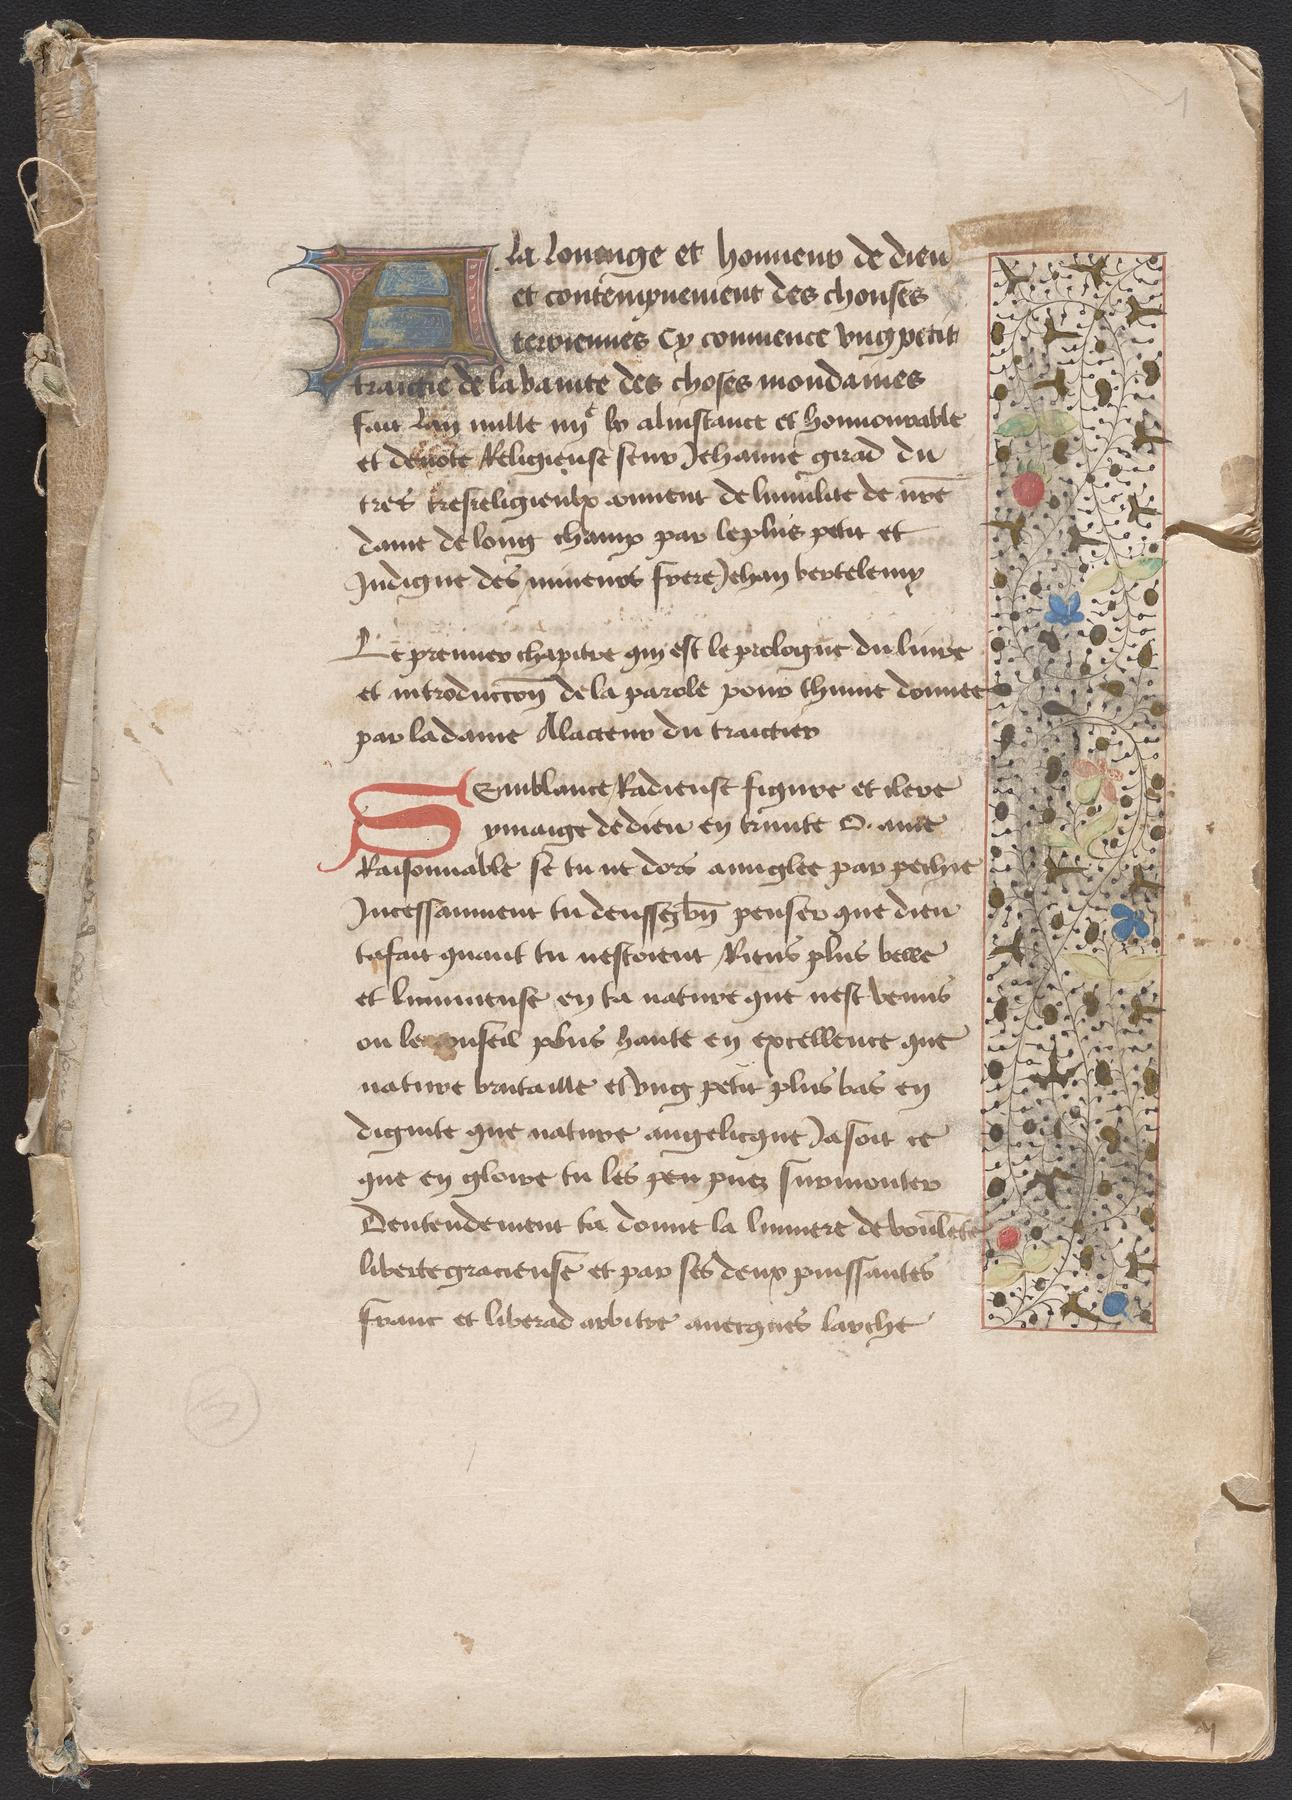 1
A la louenge et honneur de dieu
et contempnement des chouses
terriennes Cy commence vng petit
traictie de la vanite des choses mondaines
fait lan mille iiijc lx a linstance et honnourable
et deuote Religieuse seur Jehanne girad du
tres tresreligieulx couuent de lumilite de nre
dame de long champ par le plus petit et
Indigne des mineurs frere Jehan bertelemy
Le premier chapitre qui est le prologue du liure
et introduccon de la parole pour thume donnee
par la dame Alacteur du traictier
SEmblance Radieuse figure et clere
ymaige de dieu en trinite O. ame
Raisonnable se tu ne dors auuglee par pechie
Incessamment tu deussez bn penser que dieu
ta fait quant tu nestoient Riens plus belle
et lumineuse en ta nature que nest venus
ou le conseil plus haute en excellence que
nature brutaille et vng petit plus bas en
dignite que nature angelicque Ja soit ce
que en gloire tu les peu puez surmonter
Dentendement ta donne la lumiere de voulete
liberte gracieuse et par ses deux puissantes
franc et liberad arbitre auecques larche